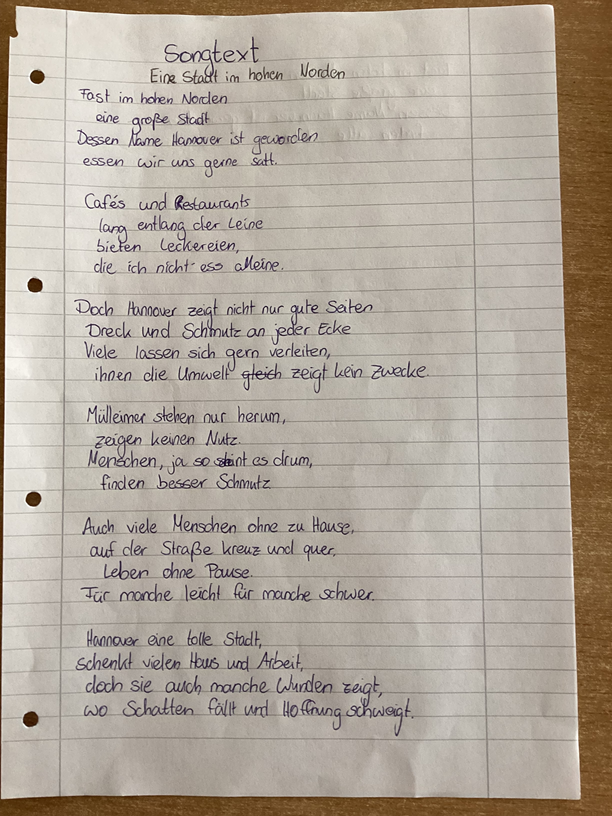 Songtext
Eine Stadt im hohen Norden
Fast im hohen Norden
eine große Stadt
Dessen Name Hannover ist geworden
essen wir uns gerne satt.
Cafés und Restaurants
lang entlang der Leine
bieten Leckereien,
die ich nicht ess alleine.
Doch Hannover zeigt nicht nur gute Seiten
Dreck und Schmutz an jeder Ecke
Viele lassen sich gern verleiten,
ihnen die Umwelt gleich zeigt kein Zwecke.
Mülleimer stehen nur herum,
zeigen keinen Nutz.
Menschen, ja so es drum,
finden besser Schmutz
Auch viele Menschen ohne zu Hause,
auf der Straße kreuz und quer,
Leben ohne Pause.
Für manche leicht für manche schwer.
Hannover eine tolle Stadt,
schenkt vielen Haus und Arbeit,
doch sie auch manche Wunden zeigt,
wo Schatten fällt und Hoffnung schweigt.